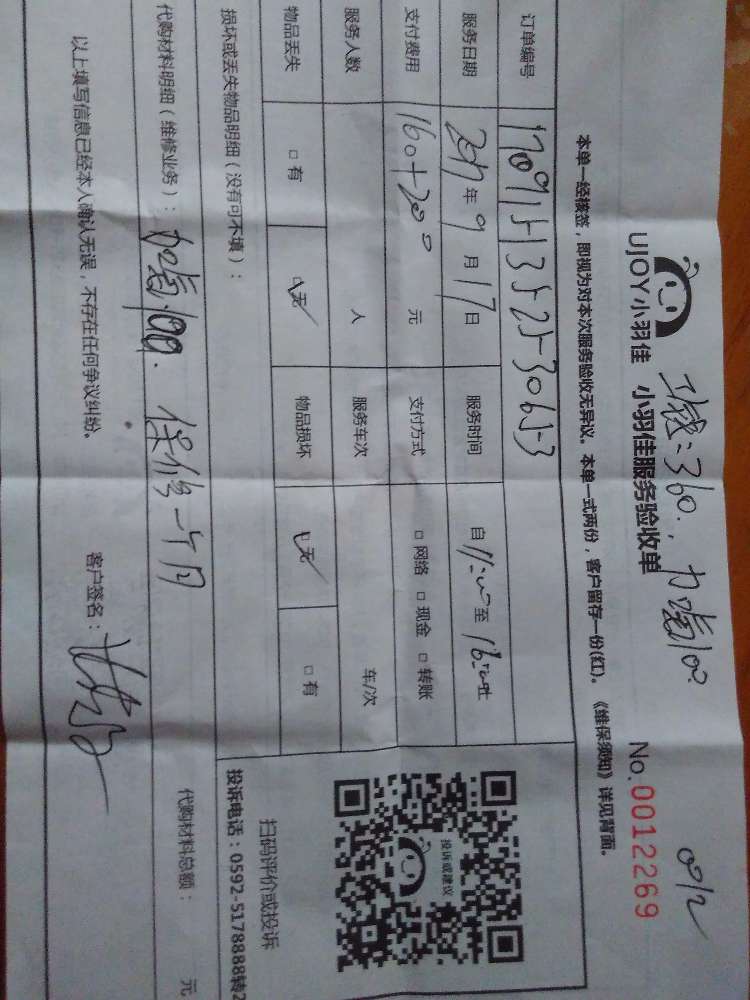 工钱:360., 加嗨100. 0012
UJOY小羽佳 小羽佳服务验收单 No.0012269
本单一经接签，即视为对本次服务验收无异议。本单一式两份，客户留存一份(红)。《维保须知》详见背面。
订单编号 170915135253065-3
服务日期 2017年9月17日 服务时间 自 至
支付费用 160+200 元 支付方式 □网络 □现金 □转账
服务人数 人 服务车次 车/次
物品丢失 □有 □无✓ 物品损坏 □无✓ □有
损坏或丢失物品明细（没有可不填）：
投诉或建议
扫码评价或投诉
投诉电话：0592-5178888转2
代购材料明细（维修业务）： 保修一个月 代购材料总额： 元
以上填写信息已经本人确认无误，不存在任何争议纠纷。 客户签名：